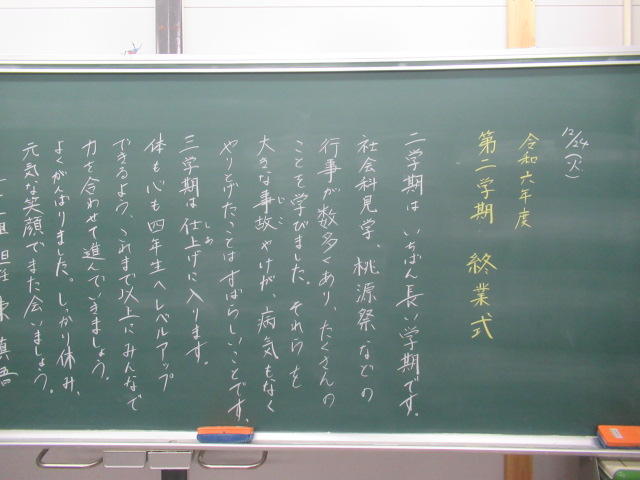 12/24(火)
令和六年度
第二学期 終業式
二学期は いちばん長い学期です。
社会科見学、桃源祭などの
行事が数多くあり、たくさんの
ことを学びました。それらを
大きな事故やけが、病気もなく
じこ
やりとげたことはすばらしいことです。
三学期は 仕上げに入ります。
しあ
体も心も四年生へレベルアップ
できるよう、これまで以上にみんなで
力を合わせて進んでいきましょう。
よくがんばりました。しっかり休み、
元気な笑顔でまた会いましょう。
組 担任 慎吾